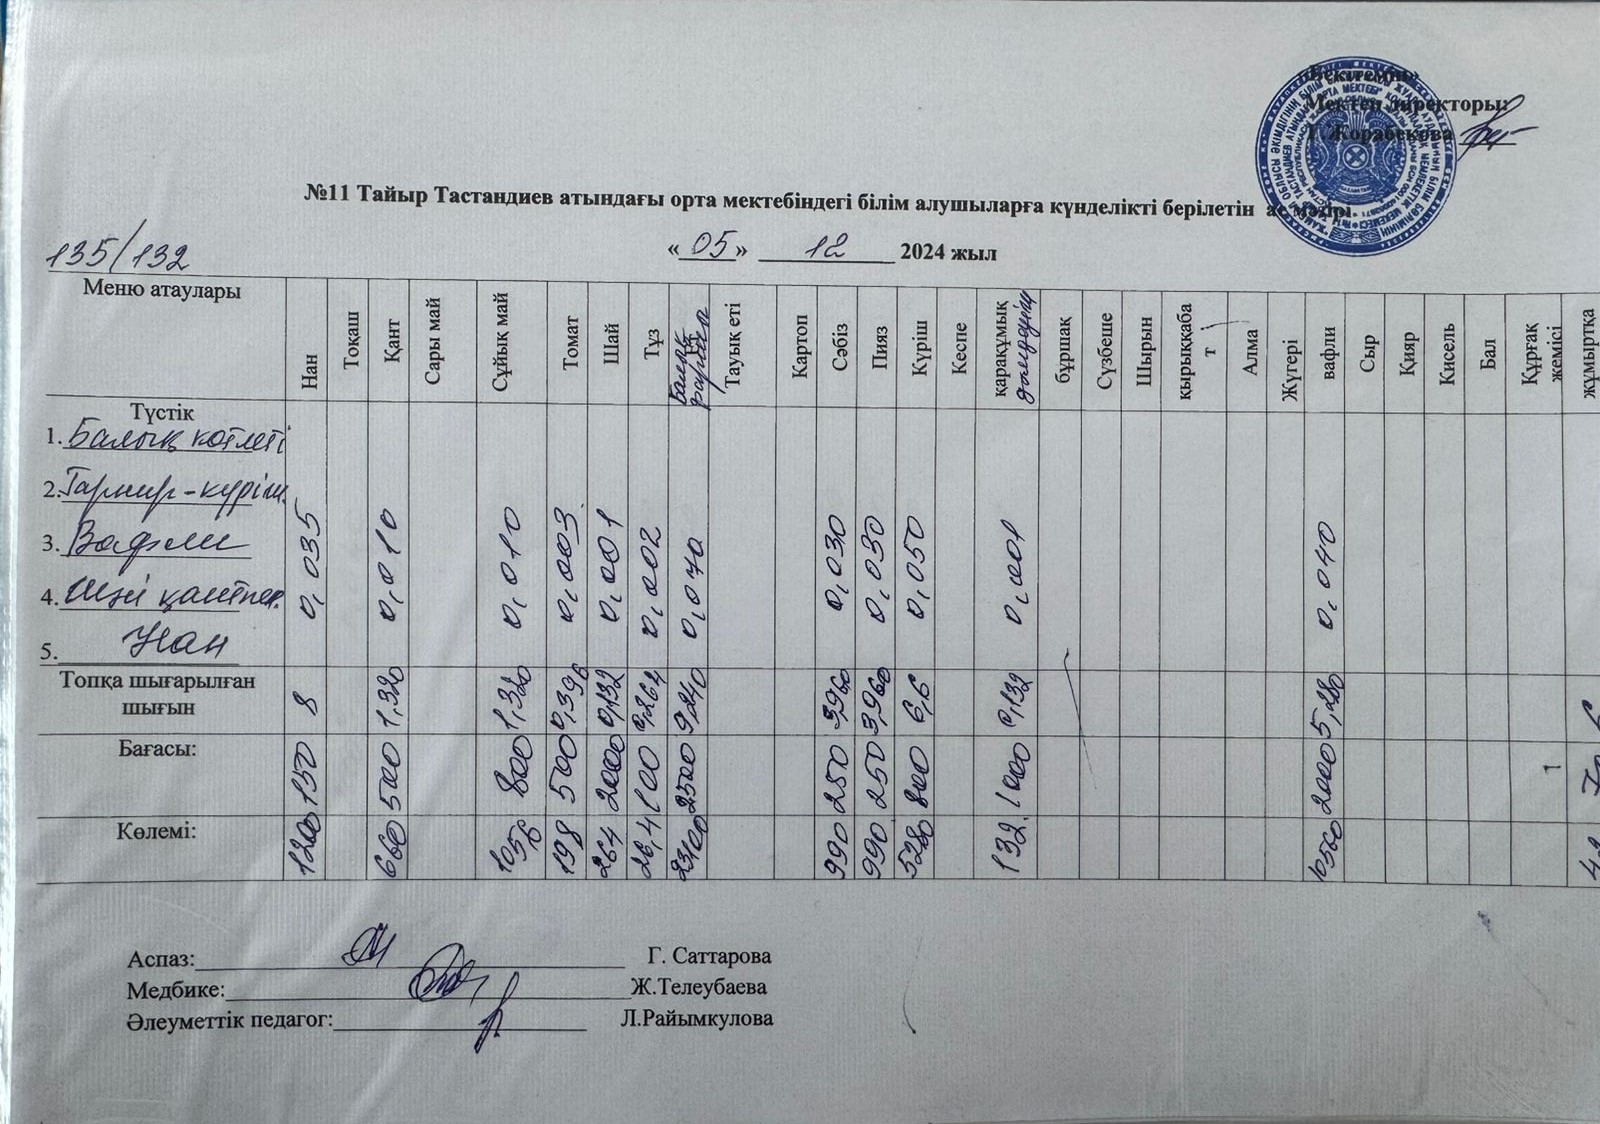 «Бекітемін»
Мектеп директоры:
Т.Жорабекова
№11 Тайыр Тастандиев атындағы орта мектебіндегі білім алушыларға күнделікті берілетін ас мәзірі
135/132
«05» 12 2024 жыл
Меню атаулары Нан Тоқаш Қант Сары май Сұйық май Томат Шай Тұз Балық Тауық еті Картоп Сәбіз Пияз Күріш Кеспе қарақұмық бұршақ Сүзбеше Шырын қырыққаба т Алма Жүгері вафли Сыр Қияр Кисель Бал Құрғақ жемісі жұмыртқа
Түстік
1. Балық котлеті
2. Гарнир-күріш.
3. Вафли
4.
5. Нан
0,035 0,010 0,010 0,003 0,001 0,002 0,070 0,030 0,030 0,050 0,001 0,040
Топқа шығарылған шығын 8 1,320 1,320 0,396 0,132 0,264 9,240 3,960 3,960 6,6 0,132 5,280 6
Бағасы: 150 500 800 500 2000 100 2500 250 250 800 1000 2000 1
Көлемі: 1200 660 1056 198 264 26,4 23100 990 990 5280 132. 10560
Аспаз: Г. Саттарова
Медбике: Ж.Телеубаева
Әлеуметтік педагог: Л.Райымкулова